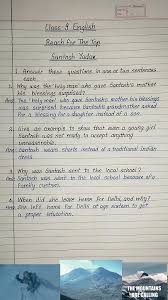 Class 9 English
Reach For The Top
Santosh Yadav
1. Answer these questions in one or two sentences each.
1. Why was the 'holy man' who gave Santosh's mother his blessings surprised?
Ans The 'holy man' who gave Santosh's mother his blessings was surprised because Santosh's grandmother asked for a blessing of a granddaughter instead of a
2. Give an example to show that even a young girl Santosh was not ready to accept anything unreasonable.
Ans Santosh wears shorts instead of a traditional Indian dress.
3. Why was Santosh sent to the local school?
Ans Santosh was sent to the local school because of a family custom.
4. When did she leave home for Delhi, and why?
Ans She left home for Delhi at age sixteen to get a proper education.
THE MOUNTAINS
ARE CALLING